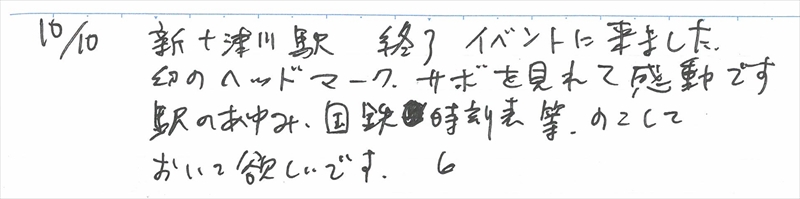 10/10 新十津川駅 終了 イベントに来ました.
幻のヘッドマーク.サボを見れて感動です
駅のあゆみ、国鉄時刻表等.のこして
おいて欲しいです. 6